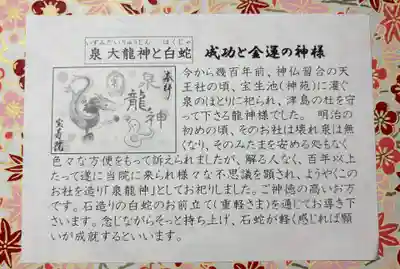 いずみだいりゅうじん　はくじゃ
泉 大龍神と白蛇
成功と金運の神様
奉拝
泉龍神
宝寿院
今から幾百年前、神仏習合の天
王社の頃、宝生池(神苑)に灌ぐ
泉のほとりに祀られ、津島の杜を守
って下さる龍神様でした。 明治の
初めの頃、そのお社は壊れ泉は無
くなり、そのみたまを安める処もなく
色々な方便をもって訴えられましたが、解る人なく、百年以上
たって遂に当院に来られ様々な不思議を顕され、ようやくこの
お社を造り「泉龍神」としてお祀りました。ご神徳の高いお方
です。石造りの白蛇のお前立て(重軽さま)を通じてお導き下
さいます。念じながらそっと持ち上げ、石蛇が軽く感じれば願
いが成就するといいます。